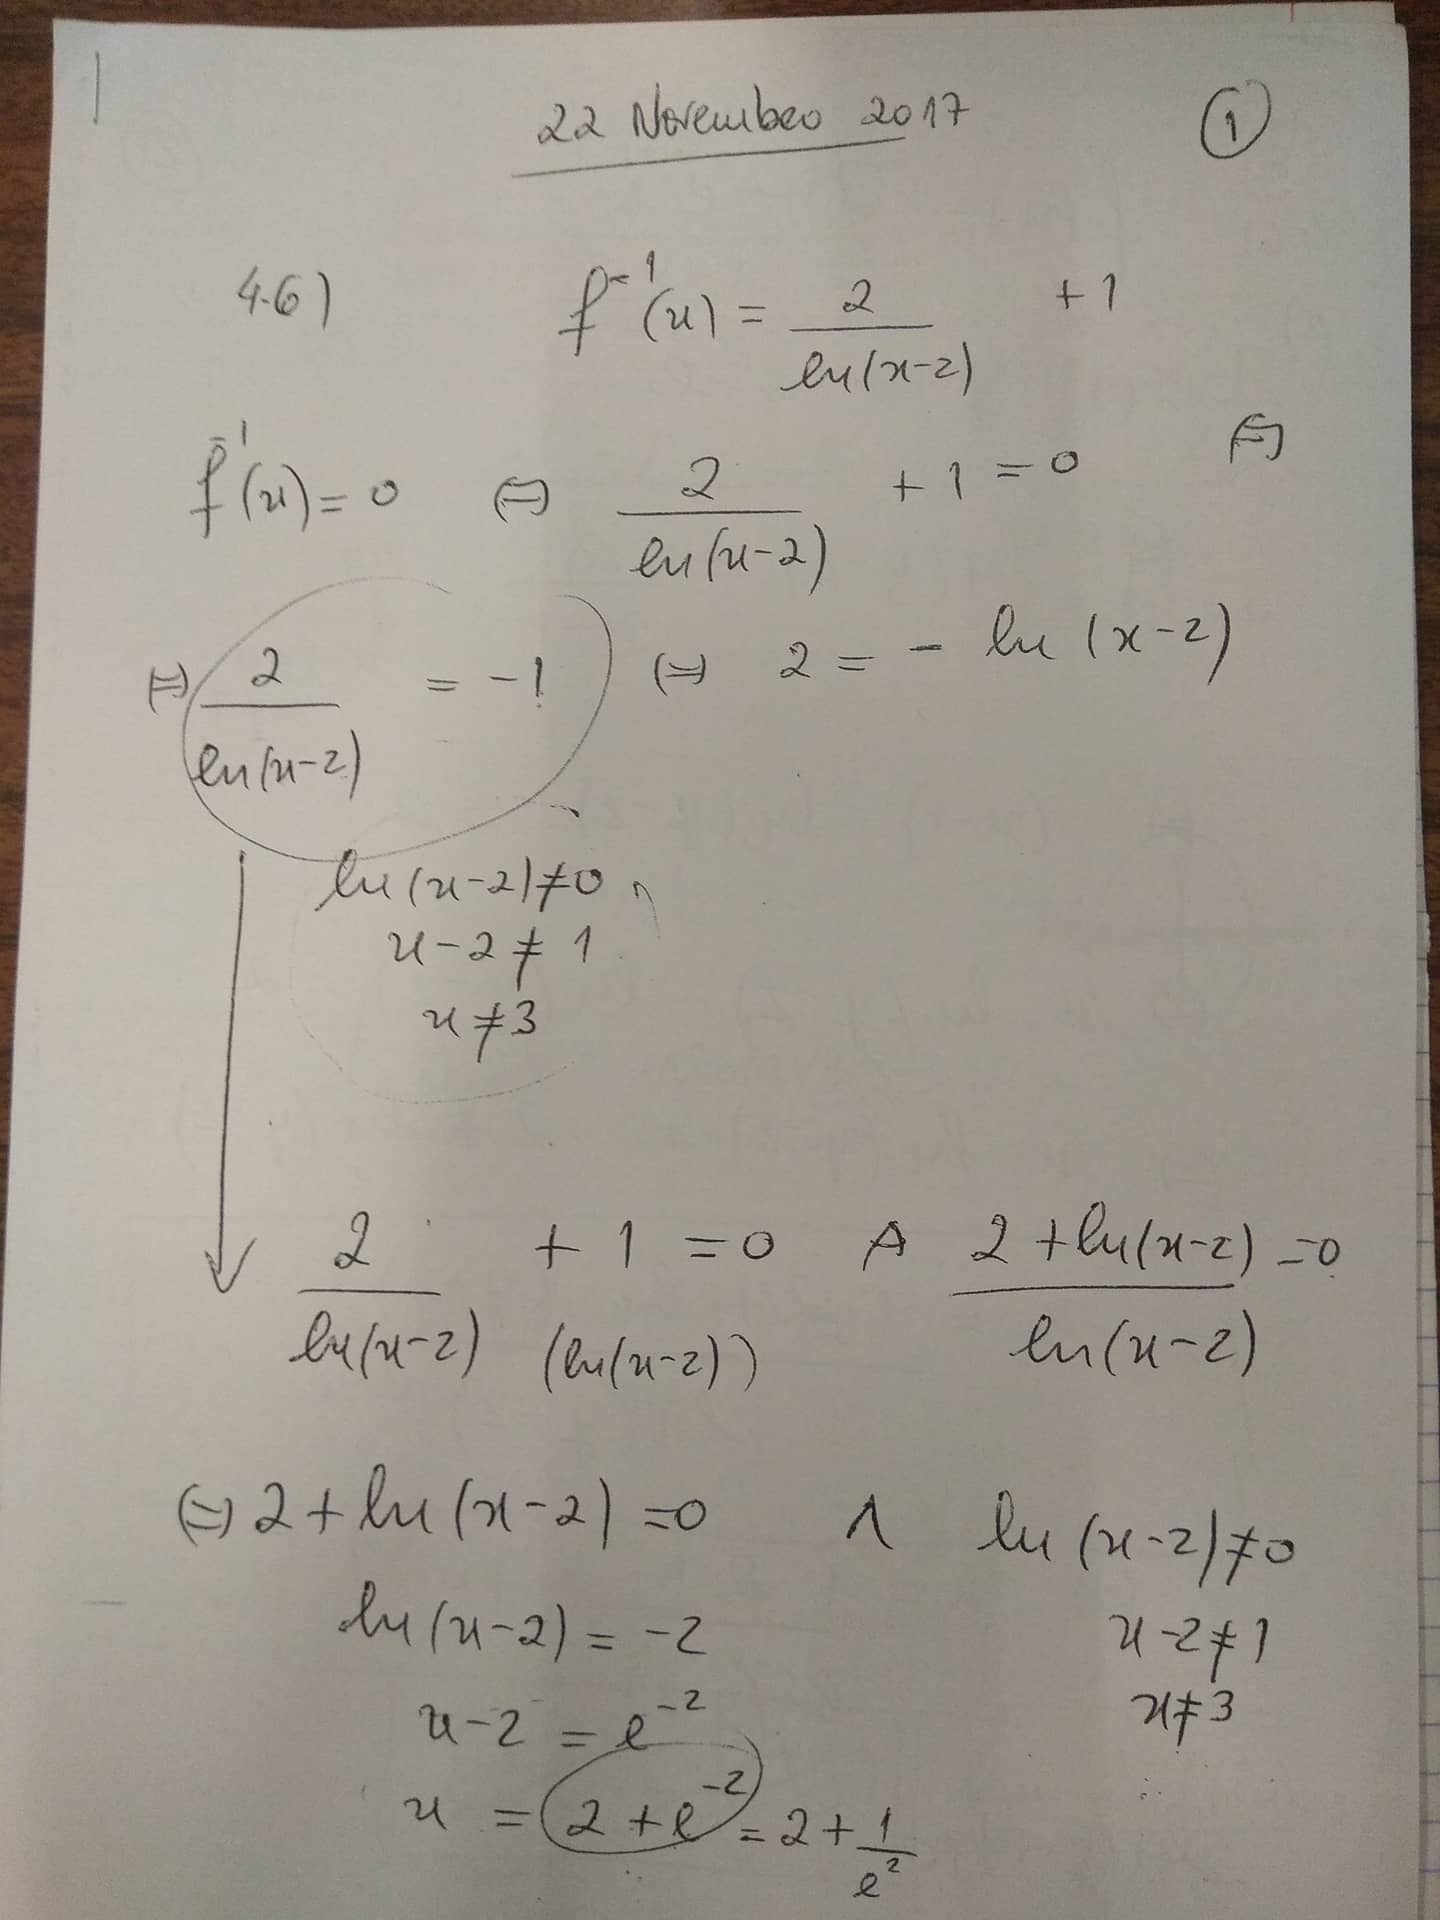 22 Novembro 2017 ①
4.6) f⁻¹(x) = 2/ln(x-2) + 1
f⁻¹(x) = 0 (=) 2/ln(x-2) + 1 = 0 (=)
(=) 2/ln(x-2) = -1 (=) 2 = - ln(x-2)
ln(x-2) ≠ 0
x-2 ≠ 1
x ≠ 3
2/ln(x-2) + 1 = 0 2+ln(x-2)/ln(x-2) = 0
(ln(x-2))
(=) 2+ln(x-2) = 0 ∧ ln(x-2) ≠ 0
ln(x-2) = -2 x-2 ≠ 1
x-2 = e⁻² x ≠ 3
x = 2+e⁻² = 2 + 1/e²